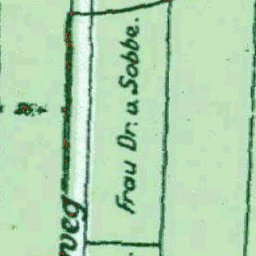 Frau Dr. v. Sobbe.
weg